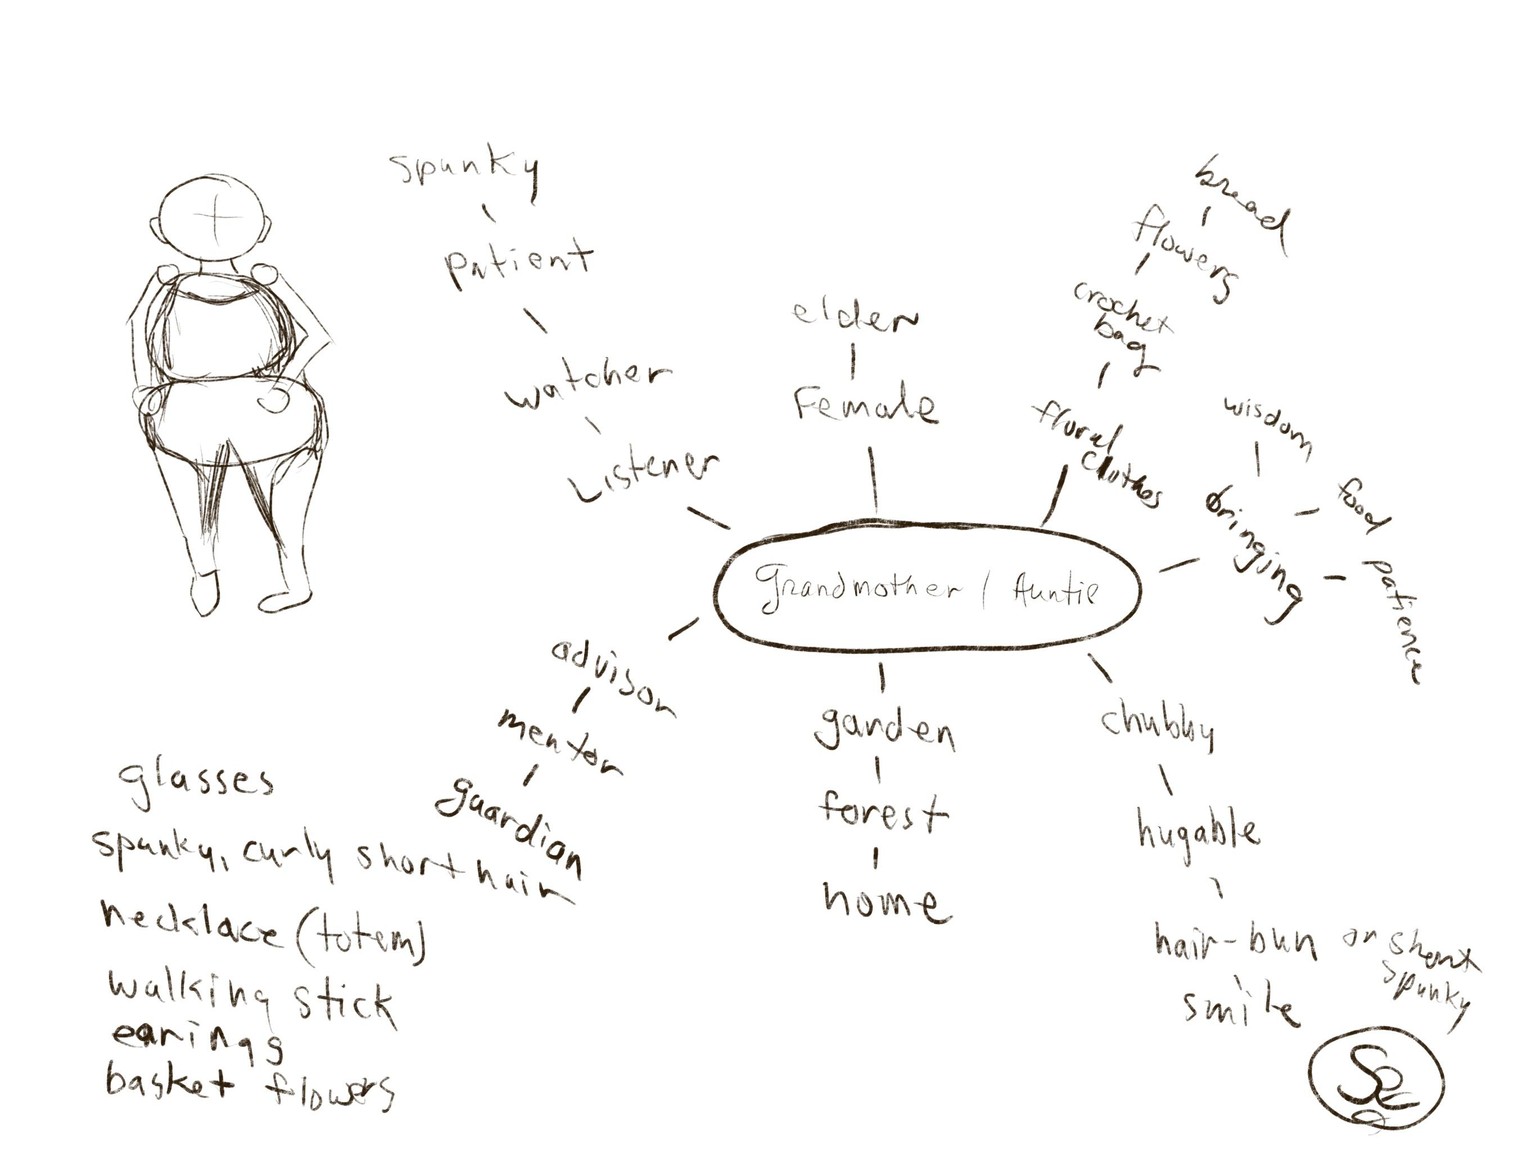 spunky
patient
watcher
Listener
elder
Female
bread
flowers
crochet
bag
floral
clothes
wisdom
food
patience
bringing
grandmother / Auntie
advisor
mentor
guardian
garden
forest
home
chubby
hugable
hair-bun or short
spunky
smile
glasses
spunky, curly short hair
necklace (totem)
walking stick
earings
basket flowers